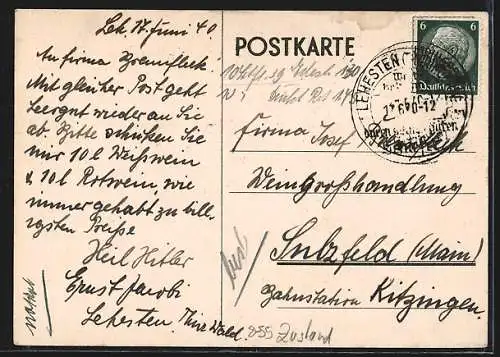 Leh. 17. Juni 40
An Firma Brennfleck.
Mit gleicher Post geht
Leergut wieder an Sie
ab. Bitte schicken Sie
mir 10 l Weißwein
& 10 l Rotwein, wie
immer gehabt zu bill-
igsten Preiße
Heil Hitler
Ernst Jacobi
Lehesten Thür Wald
POSTKARTE
6 6
Deutsches Reich
LEHESTEN
Firma Josef
Weingroßhandlung
Sulzfeld (Main)
Bahnstation Kitzingen.